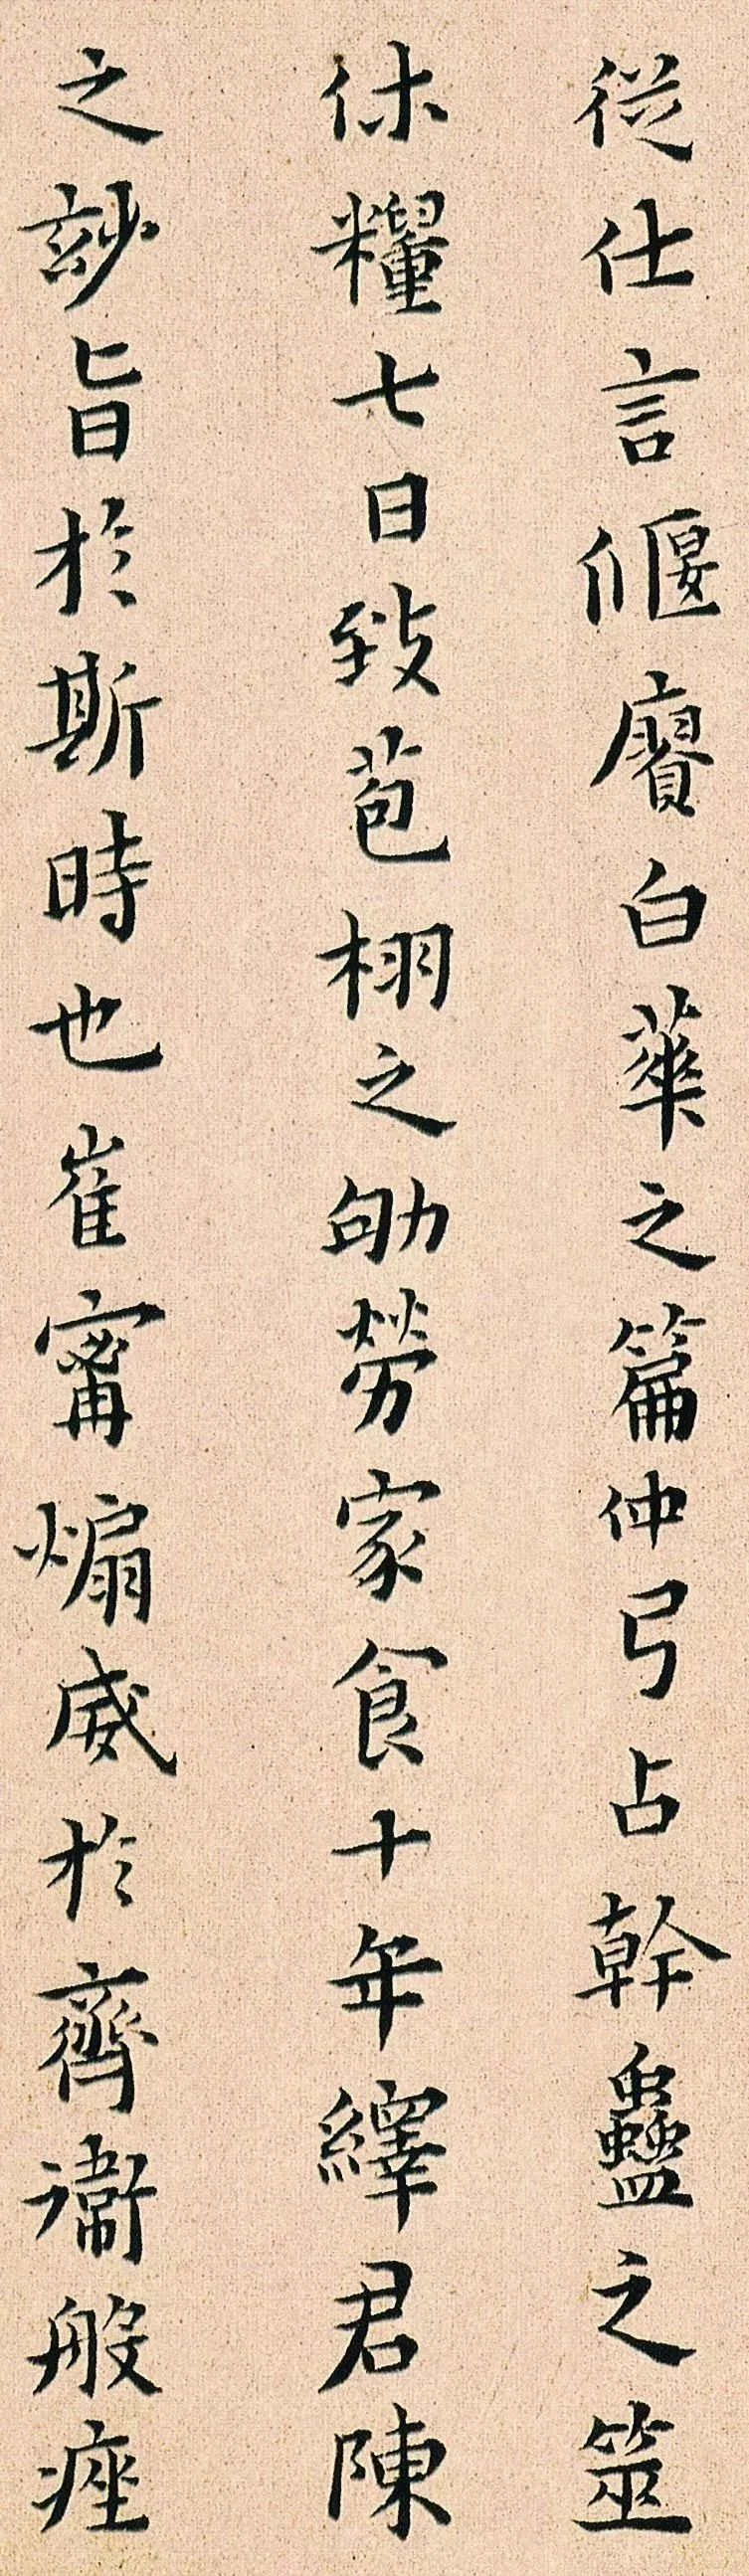 從仕言偃賡白華之篇仲弓占幹蠱之筮
休糧七日致苞栩之劬勞家食十年繹君陳
之玅旨於斯時也崔甯煽威於齊衞般痤